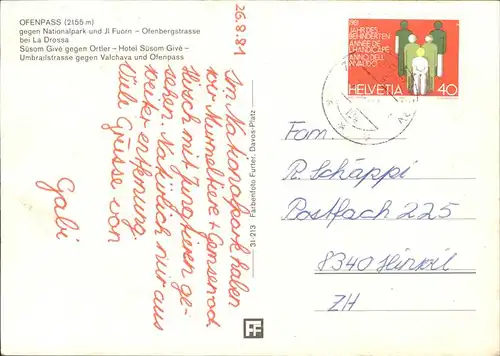 OFENPASS (2155 m)
gegen Nationalpark und Jl Fuorn – Ofenbergstrasse
bei La Drossa
Süsom Givè gegen Ortler – Hotel Süsom Givè –
Umbrailstrasse gegen Valchava und Ofenpass
26.8.81
Im Nationalpark haben
wir Murmeltiere + Gemsen od.
Hirsch mit Jungtieren ge-
sehen. Natürlich nur aus
weiter entfernung.
Viele Grüsse von
Gabi
31-213 Farbenfoto Furter, Davos-Platz
FF
1981
JAHR DES
BEHINDERTEN
ANNEE DE
L'HANDICAPE
ANNO DELL'
INVALIDO
HELVETIA 40
Fam.
R. Schäppi
Postfach 225
8340 Hinwil
ZH